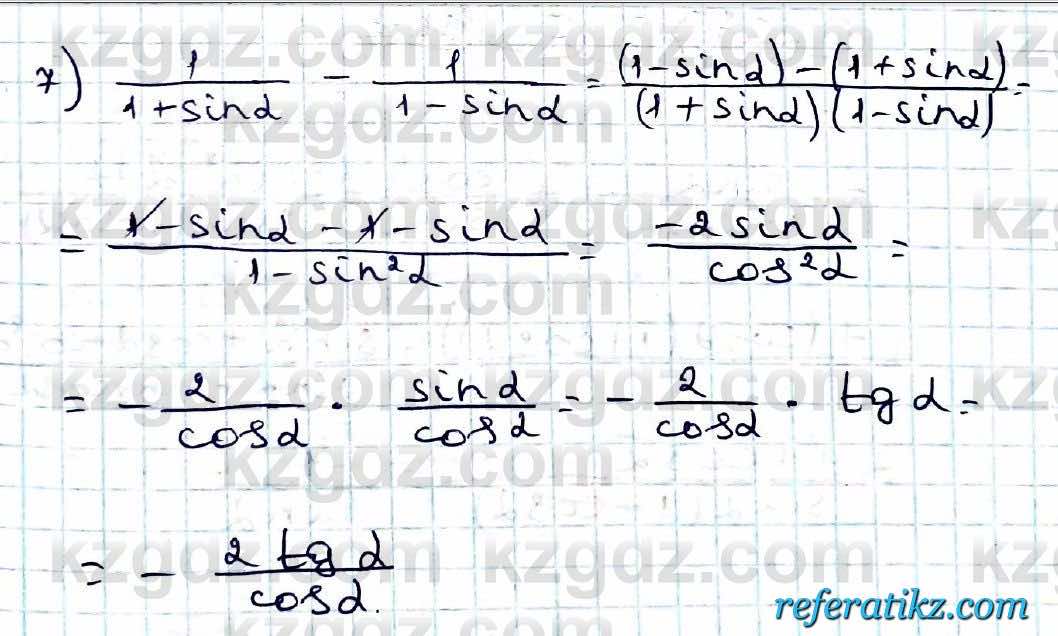 7) 1/(1+sinα) - 1/(1-sinα) = ((1-sinα)-(1+sinα))/((1+sinα)(1-sinα)) =
= (1-sinα-1-sinα)/(1-sin²α) = (-2sinα)/(cos²α) =
= - 2/cosα · sinα/cosα = - 2/cosα · tgα =
= - (2 tgα)/cosα.
kzgdz.com
referatikz.com